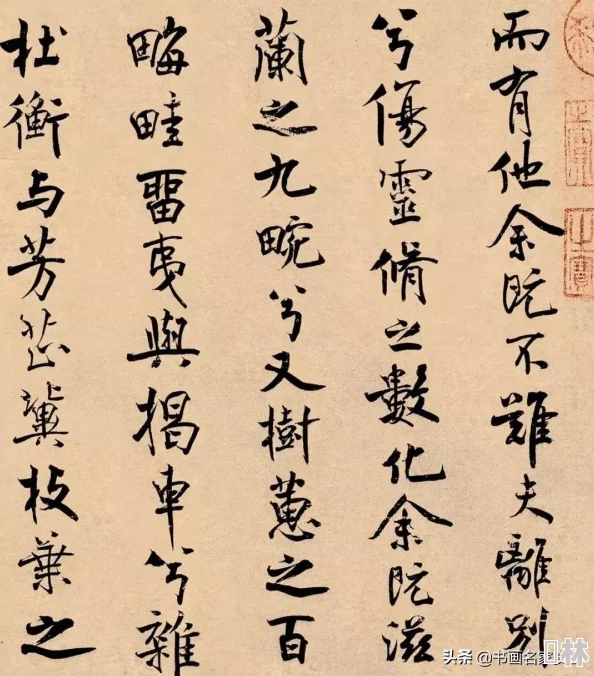 而有他余既不難夫離别
兮傷靈脩之數化余既滋
蘭之九畹兮又樹蕙之百
畮畦留夷與揭車兮雜
杜衡与芳芷兾枝葉之
头条 @书画名家